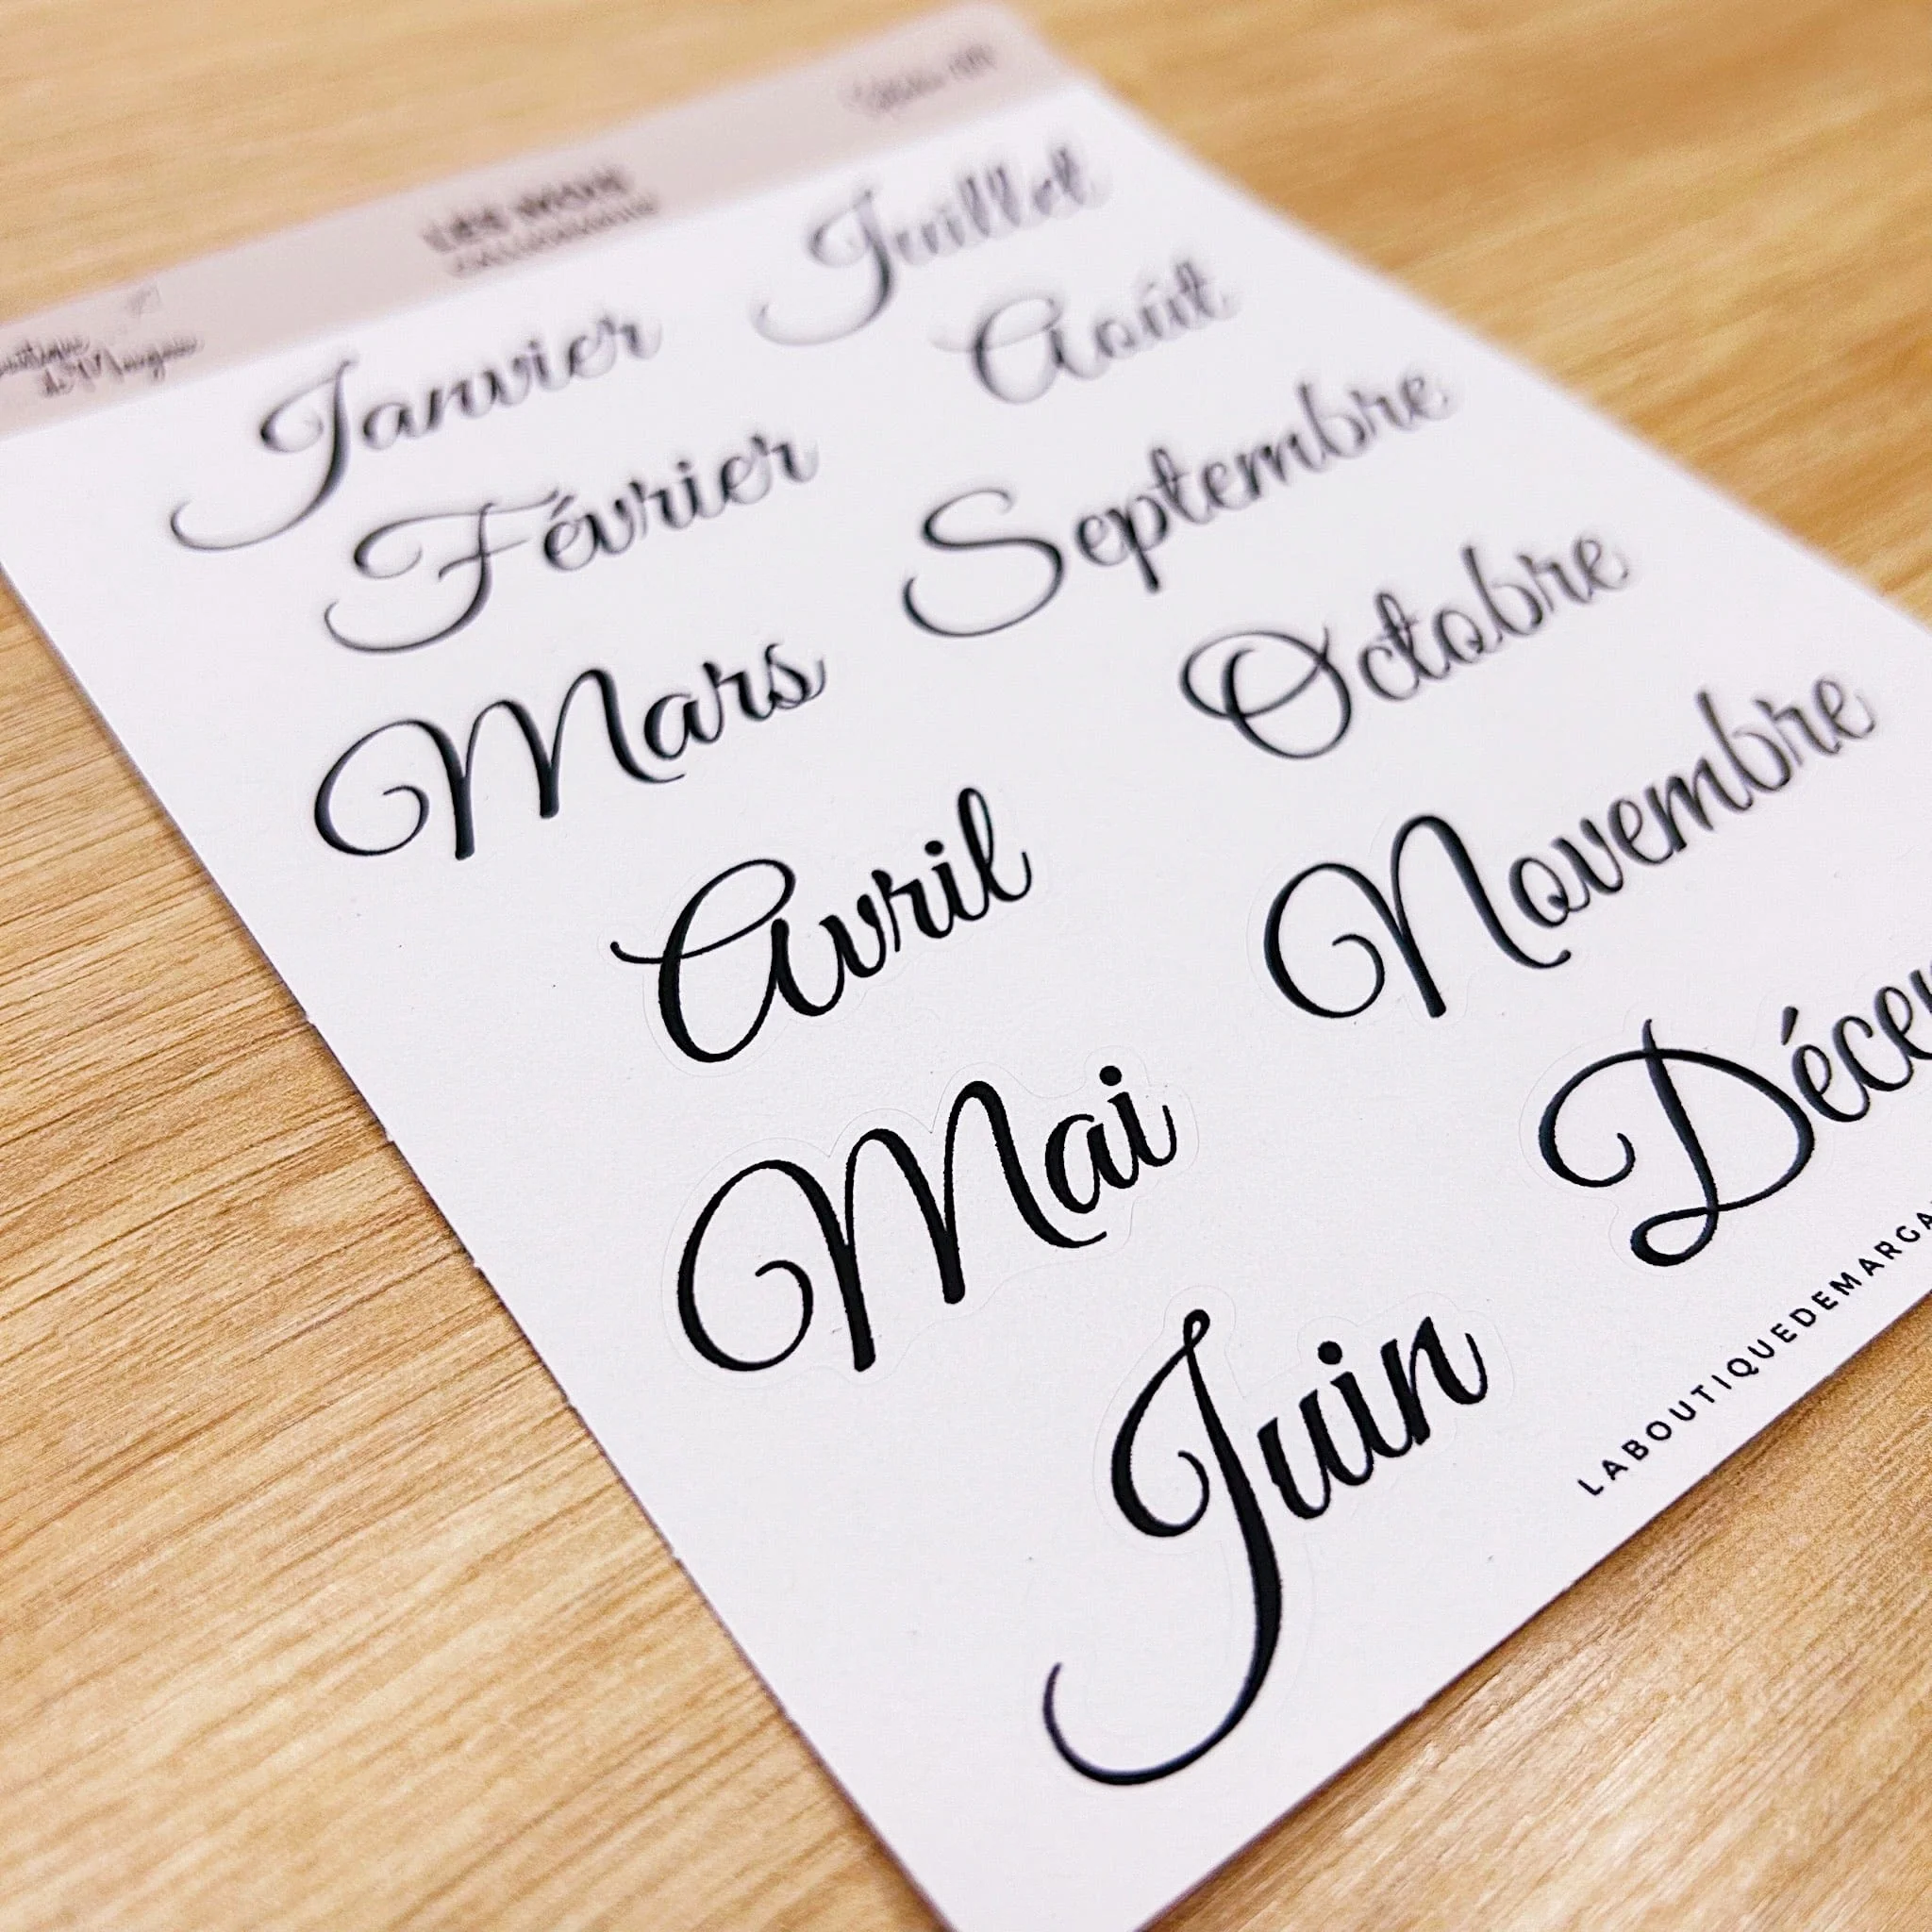 de Margaux
LES MOIS
Janvier
Février
Mars
Avril
Mai
Juin
Juillet
Août
Septembre
Octobre
Novembre
Déce
LABOUTIQUEDEMARGA